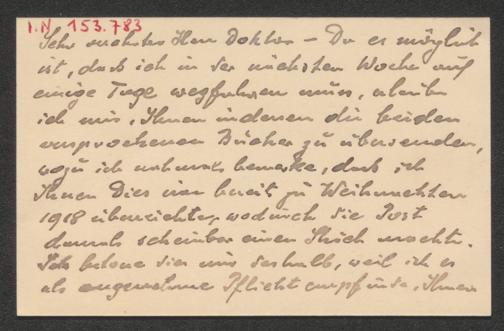 I.N. 153.783
Sehr verehrter Herr Doktor – Da es möglich
ist, daß ich in der nächsten Woche auf
einige Tage wegfahren muss, erlaube
ich mir, Ihnen indessen die beiden
versprochenen Bücher zu übersenden,
wozu ich nochmals bemerke, daß ich
Ihnen dies bereit zu Weihnachten
1918 überreichte, wodurch die Post
damals scheinbar einen Strich machte.
Ich betone dies nur deshalb, weil ich es
als angenehme Pflicht empfinde, Ihnen